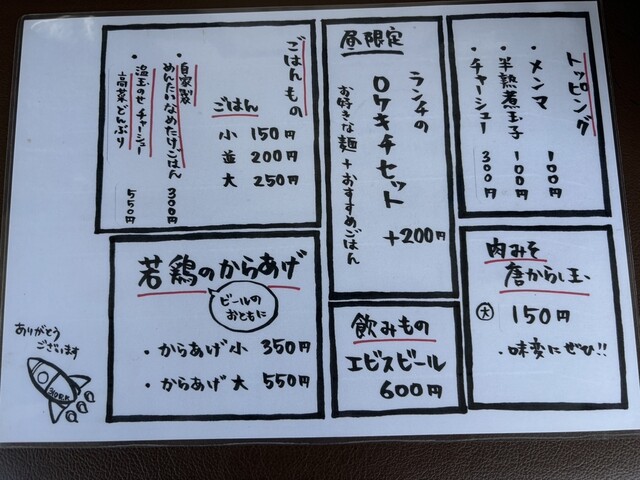 トッピング
・メンマ 100円
・半熟煮玉子 100円
・チャーシュー 300円
昼限定
ランチの
ロケキチセット
お好きな麺+おすすめごはん
+200円
ごはんもの
ごはん
小 150円
並 200円
大 250円
・自家製
めんたいなめたけごはん 300円
・温玉のせチャーシュー
高菜どんぶり 550円
肉みそ
唐からし玉
大 150円
・味変にぜひ!!
飲みもの
エビスビール
600円
若鶏のからあげ
ビールの
おともに
・からあげ小 350円
・からあげ大 550円
ありがとう
ございます